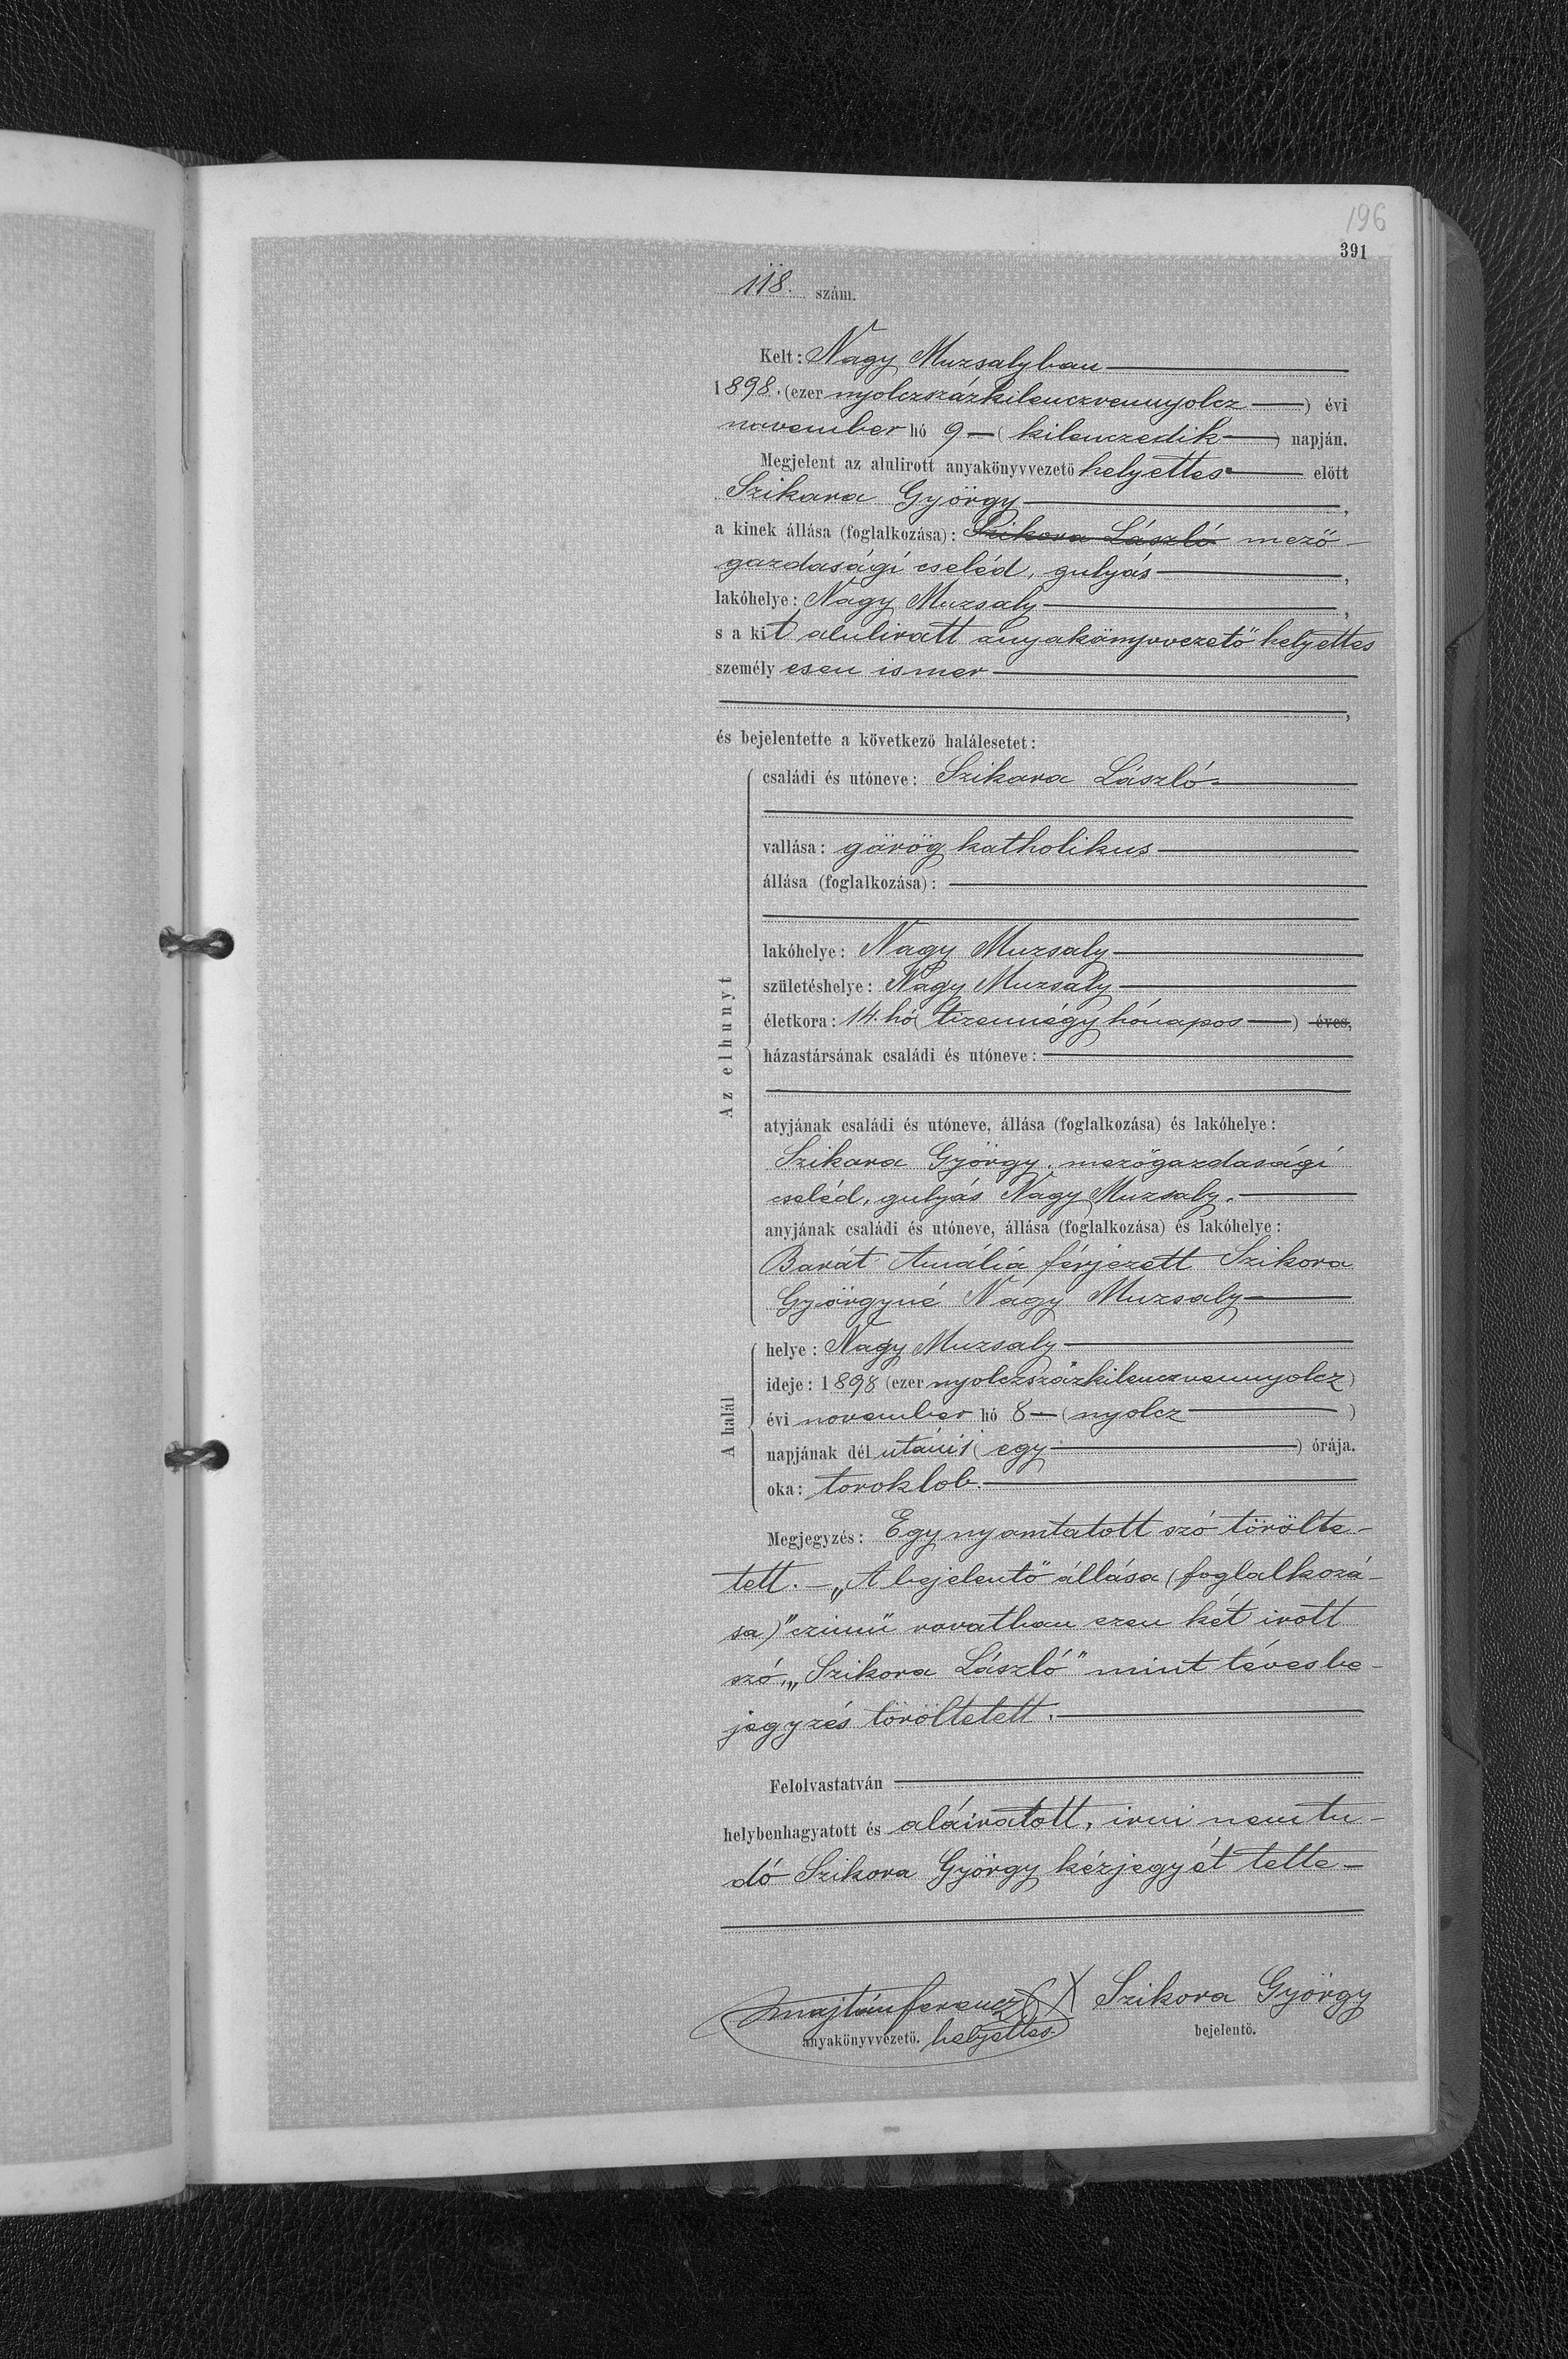 196
391
118. szám.
Kelt: Nagy Muzsalyban
1898. (ezer nyolczszázkilenczvennyolcz) évi
november hó 9 (kilenczedik) napján.
Megjelent az alulirott anyakönyvvezető helyettes előtt
Szikora György,
a kinek állása (foglalkozása): Szikora László mező-
gazdasági cseléd, gulyás,
lakóhelye: Nagy Muzsaly,
s a kit alulirott anyakönyvvezető helyettes
személyesen ismer
és bejelentette a következő halálesetet:
Az elhunyt
családi és utóneve: Szikora László
vallása: görög katholikus
állása (foglalkozása):
lakóhelye: Nagy Muzsaly
születéshelye: Nagy Muzsaly
életkora: 14. hó (tizennégy hónapos) éves,
házastársának családi és utóneve:
atyjának családi és utóneve, állása (foglalkozása) és lakóhelye:
Szikora György, mezőgazdasági
cseléd, gulyás Nagy Muzsaly.
anyjának családi és utóneve, állása (foglalkozása) és lakóhelye:
Barát Amália férjezett Szikora
Györgyné Nagy Muzsaly
A halál
helye: Nagy Muzsaly
ideje: 1898 (ezer nyolczszázkilenczvennyolcz)
évi november hó 8 (nyolcz)
napjának dél utáni 1 (egy) órája.
oka: toroklob.
Megjegyzés: Egy nyomtatott szó törölte-
tett. — „A bejelentő állása (foglalkozá-
sa)" czimü rovatban ezen két irott
szó „Szikora László" mint téves be-
jegyzés töröltetett.
Felolvastatván
helybenhagyatott és aláiratott, irni nem tu-
dó Szikora György kézjegyét tette
Majtán Ferencz X Szikora György
anyakönyvvezető. helyettes. bejelentő.